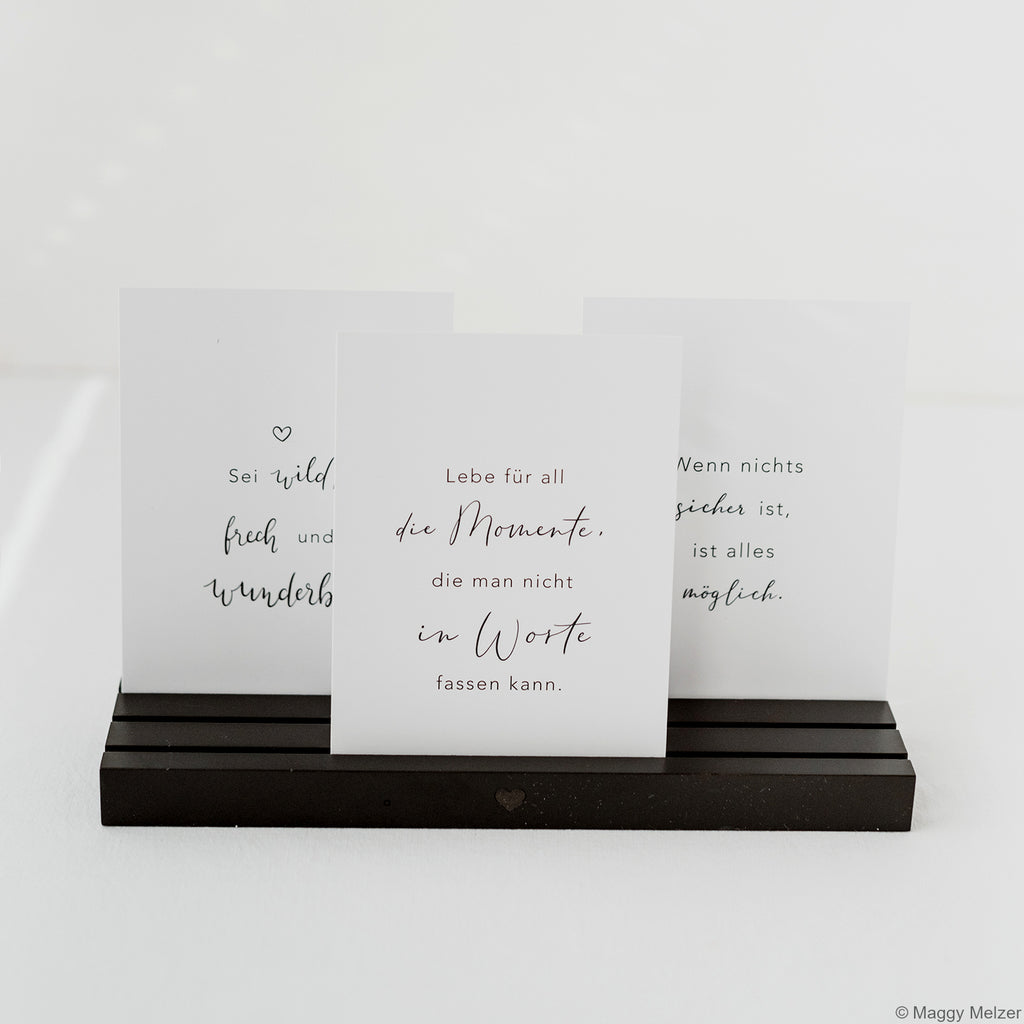 Sei wild,
frech und
wunderb
Lebe für all
die Momente,
die man nicht
in Worte
fassen kann.
Wenn nichts
sicher ist,
ist alles
möglich.
© Maggy Melzer